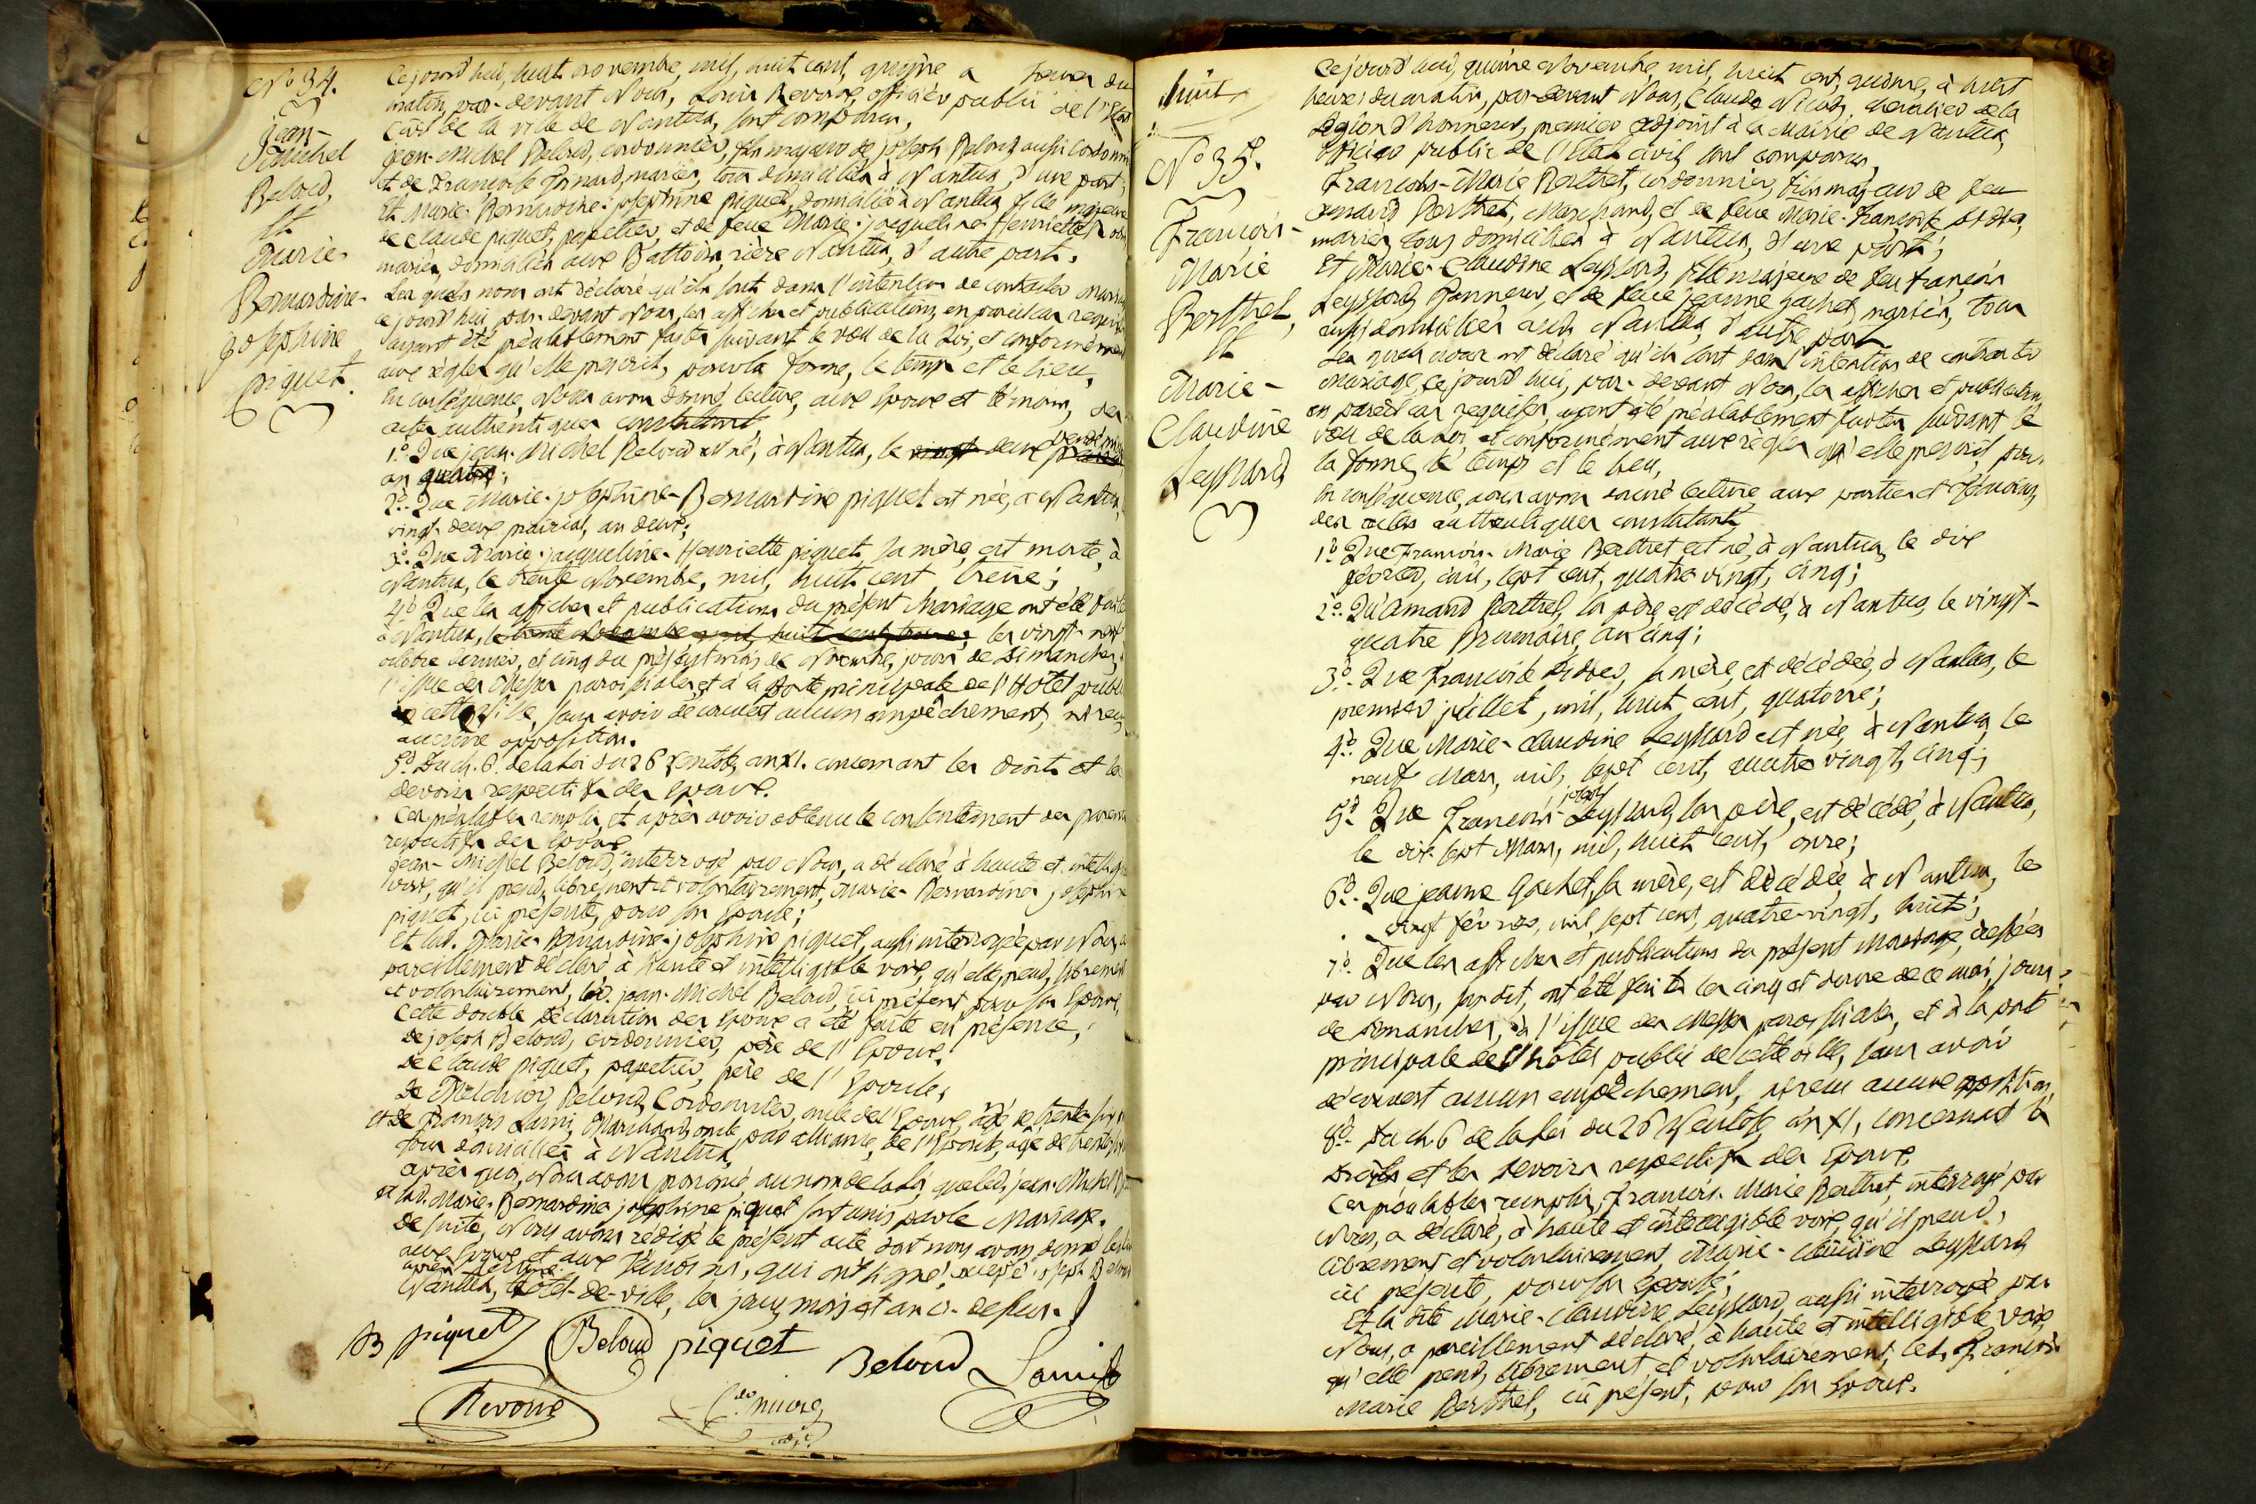 N° 34.
Jean-
Michel
Beloud,
Et
Marie-
Bernardine-
Josephine
piquet.
Cejourd'hui, huit novembre, mil, huit cent, quinze, a heures du
matin, par-devant Nous, Louis Revoire, officier public de l'Etat
Civil de la ville de Nantua, sont comparus,
Jean-Michel Beloud, cordonnier, fils majeur de joseph Beloud, aussi Cordonnier
et de Francoise mariés, tous domiciliés à Nantua, d'une part;
Et Marie-Bernardine-josephine piquet, domiciliée à Nantua, fille majeure
de Claude piquet, papetier, et de feue Marie-jacqueline-Henriette
mariés, domiciliés aux Battoirs, rière Nantua, d'autre part.
Les quels nous ont déclaré qu'ils sont dans l'intention de contracter mariage
ce jourd'hui, par-devant Nous, les affiches et publications, en pareil cas requises
ayant été préalablement faites suivant le vœu de la Loi, et conformément
aux règles qu'elle prescrit, pour la forme, le temps et le lieu,
En conséquence, Nous avons donné lecture, aux Epoux et témoins, des
actes authentiques constatant
1° Que jean-Michel Beloud est né, à Nantua, le vingt deux
an quatre;
2° Que Marie-josephine-Bernardine piquet est née, à Nantua,
vingt-deux prairial, an deux;
3° Que Marie-jacqueline-Henriette piquet, sa mère, est morte, à
Nantua, le trente Novembre, mil, huit cent treize;
4° Que les affiches et publications du présent Mariage ont été faites
à Nantua, le trente Novembre, mil, huit cent, treize; les vingt-neuf
octobre dernier, et cinq du présent mois de Novembre, jours de Dimanches,
l'issue des Messes paroissiales, et à la porte principale de l'Hôtel public
de cette Ville, sans avoir découvert aucun empêchement, ni reçu
aucune opposition.
5° Du ch. 6. de la Loi du 26 Ventôse, an XI. concernant les droits et les
devoirs respectifs des Epoux.
Ces préalables remplis, et après avoir obtenu le consentement des parents
respectifs des Epoux
Jean-Michel Beloud, interrogé par Nous, a déclaré, à haute et intelligible
voix, qu'il prend, librement et volontairement, Marie-Bernardine-josephine
piquet, ici présente, pour son Epouse;
Et lad. Marie-Bernardine-josephine piquet, aussi interrogée par Nous, a
pareillement déclaré, à haute et intelligible voix, qu'elle prend, librement
et volontairement, led. jean-Michel Beloud, ici présent, pour son Epoux,
Cette double déclaration des Epoux a été faite en présence,
de joseph Beloud, cordonnier, père de l'Epoux,
de Claude piquet, papetier, père de l'Epouse,
de Melchior Beloud, Cordonnier, oncle de l'Epoux, âgé de trente
et de François Marchand, oncle par alliance, de l'Epouse, âgé de trente
tous domiciliés à Nantua,
après quoi, Nous avons prononcé au nom de la Loi, que led. jean-Michel
et lad. Marie-Bernardine josephine piquet sont unis par le Mariage.
De suite, Nous avons rédigé le présent acte dont nous avons donné lecture
aux Epoux et aux Témoins, qui ont signé, excepté joseph Beloud
Nantua, Hôtel-de-ville, les jour, mois et an ci-dessus.
B piquet Beloud piquet Beloud
Revoire
huit
N° 35.
François-
Marie
Berthet,
Et
Marie-
Claudine
Leyssard
Cejourd'hui, quinze Novembre, mil, huit cent, quinze, à huit
heures du matin, par-devant Nous, Claude Nicod, chevalier de la
Légion d'honneur, premier adjoint à la Mairie de Nantua,
officier public de l'Etat civil, sont comparus,
François-Marie Berthet, cordonnier, fils majeur de feu
Amand Berthet, Marchand, et de feue Marie-Françoise
mariés, tous domiciliés à Nantua, d'une part;
Et Marie-Claudine Leyssard, fille majeure de feu François
Leyssard, Tanneur, et de feue jeanne Gachet, mariés, tous
aussi domiciliés aud. Nantua, d'autre part.
Les quels nous ont déclaré qu'ils sont dans l'intention de contracter
mariage, ce jourd'hui, par-devant Nous, les affiches et publications
en pareil cas requises, ayant été préalablement faites suivant le
vœu de la Loi, et conformément aux règles qu'elle prescrit, pour
la forme, le temps et le lieu,
En conséquence, nous avons donné lecture, aux parties et témoins,
des actes authentiques constatant
1° Que François-Marie Berthet est né, à Nantua, le dix
février, mil, sept cent, quatre vingt, cinq;
2° Qu'Amand Berthet, son père, est décédé, à Nantua, le vingt-
quatre Brumaire, an cinq;
3° Que Françoise sa mère, est décédée, à Nantua, le
premier juillet, mil, huit cent, quatorze;
4° Que Marie-Claudine Leyssard est née, à Nantua, le
neuf Mars, mil, sept cent, quatre vingt, cinq;
5° Que François-joseph Leyssard, son père, est décédé, à Nantua,
le dix-sept Mars, mil, huit cent, onze;
6° Que jeanne Gachet, sa mère, est décédée, à Nantua, le
vingt février, mil, sept cent, quatre-vingt, huit;
7° Que les affiches et publications du présent Mariage, dressées
par Nous, susdit, ont été faites les cinq et douze de ce mois, jours
de dimanches, à l'issue des Messes paroissiales, et à la porte
principale de l'hôtel public de cette ville, sans avoir
découvert aucun empêchement, ni reçu aucune opposition,
8° Du ch. 6 de la Loi du 26 Ventôse, an XI, concernant les
droits et les devoirs respectifs des Epoux,
Ces préalables remplis, François-Marie Berthet, interrogé par
Nous, a déclaré, à haute et intelligible voix, qu'il prend,
librement et volontairement, Marie-Claudine Leyssard,
ici présente, pour son Epouse;
Et la dite Marie-Claudine Leyssard, aussi interrogée par
Nous, a pareillement déclaré, à haute et intelligible voix,
qu'elle prend, librement et volontairement, led. François-
Marie Berthet, ici présent, pour son Epoux.